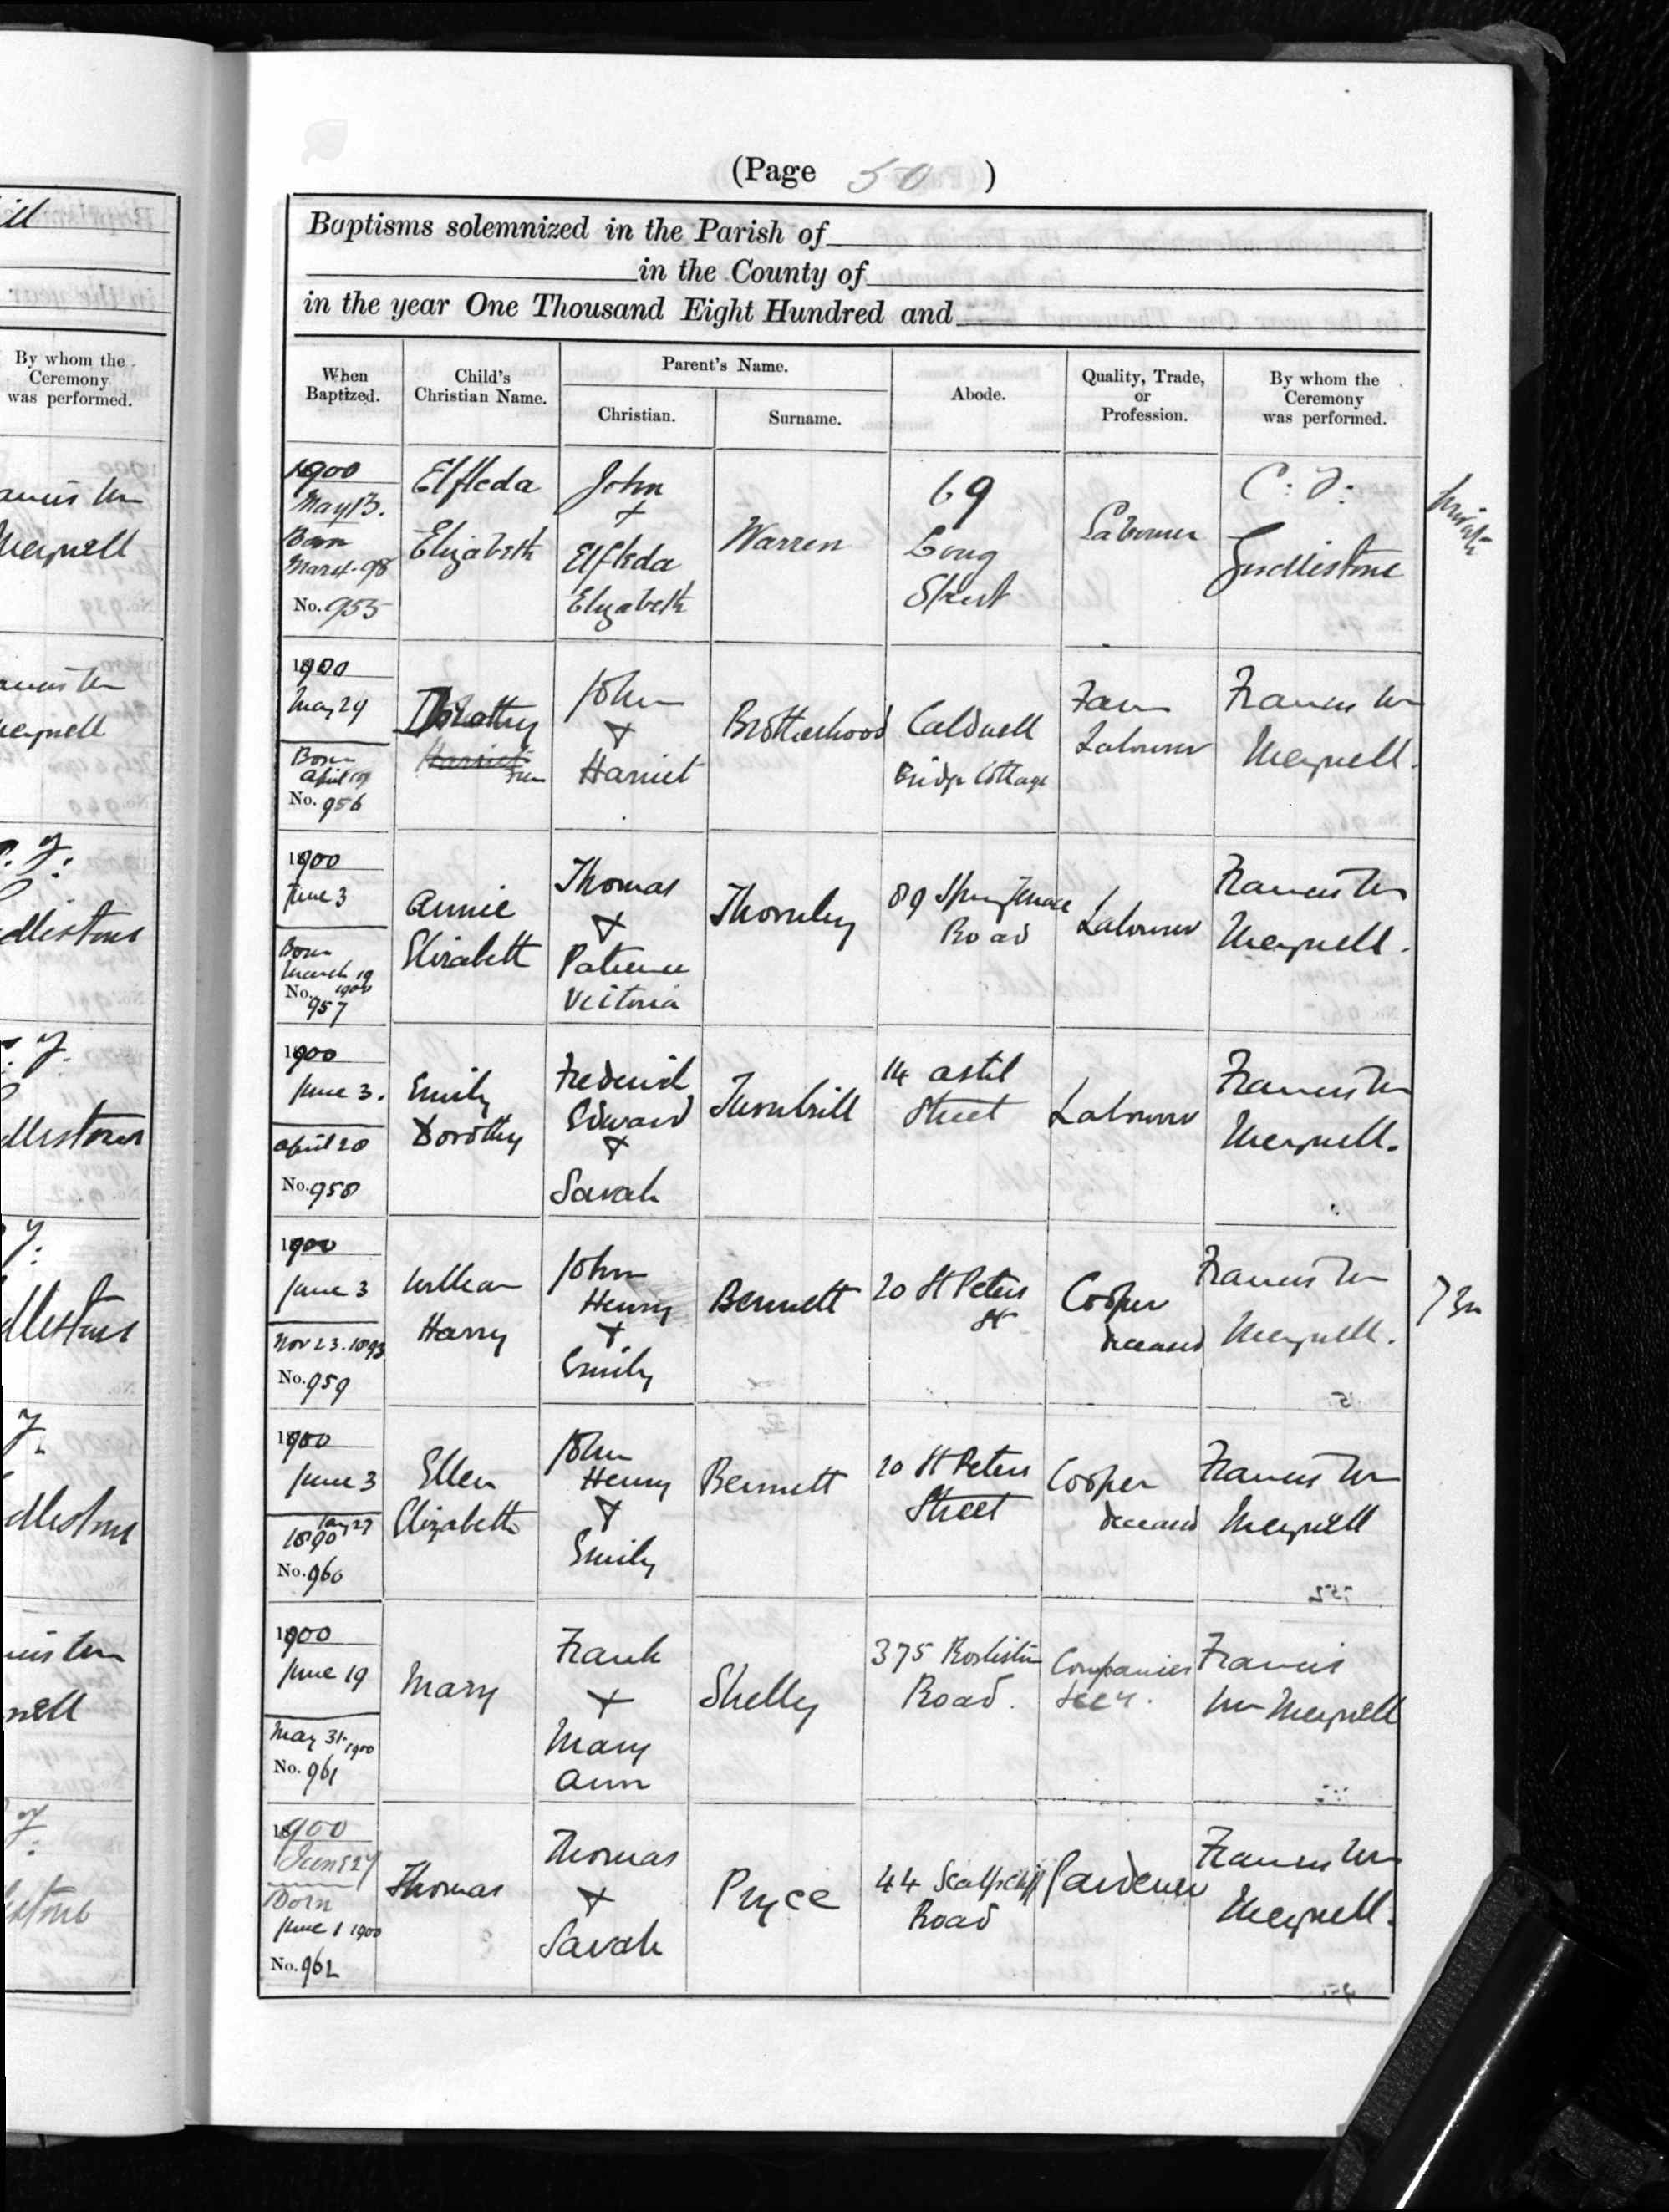 (Page 50 )
Baptisms solemnized in the Parish of
in the County of
in the year One Thousand Eight Hundred and
By whom the
Ceremony
was performed.
When
Baptized.
Child's
Christian Name.
Parent's Name.
Christian.
Surname.
Abode.
Quality, Trade,
or
Profession.
By whom the
Ceremony
was performed.
1900
May 13.
Born
Mar 4. 98
No. 955
Elfleda
Elizabeth
John
+
Elfleda
Elizabeth
Warren
69
Long
Street
Labourer
Girdlestone
private
1900
May 24
Born
April
No. 956
Dorothy
John
+
Harriet
Brotherhood
Caldwell
Bridge Cottage
Farm
Labourer
Francis Wm
Meynell.
1900
June 3
Born
March 19
1900
No. 957
Annie
Elizabeth
Thomas
+
Patience
Victoria
Thornley
89 Spring Terrace
Road
Labourer
Francis Wm
Meynell.
1900
June 3.
April 20
No. 958
Emily
Dorothy
Frederick
Edward
+
Sarah
Thornhill
14 Astil
Street
Labourer
Francis Wm
Meynell.
1900
June 3
Nov 23. 1893
No. 959
William
Harry
John
Henry
+
Emily
Bennett
20 St Peters
St
Cooper
deceased
Francis Wm
Meynell.
1900
June 3
1890
No. 960
Ellen
Elizabeth
John
Henry
+
Emily
Bennett
20 St Peters
Street
Cooper
deceased
Francis Wm
Meynell
1900
June 19
May 31. 1900
No. 961
Mary
Frank
+
Mary
Ann
Shelly
375 Rosliston
Road.
Companies
Secy.
Francis
Wm Meynell
1900
June 27
Born
June 1 1900
No. 962
Thomas
Thomas
+
Sarah
Pryce
44 Scalpcliff
Road
Gardener
Francis Wm
Meynell.